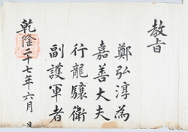 教旨
鄭弘淳爲
嘉善大夫
行龍驤衛
副護軍者
乾隆二十七年六月 日